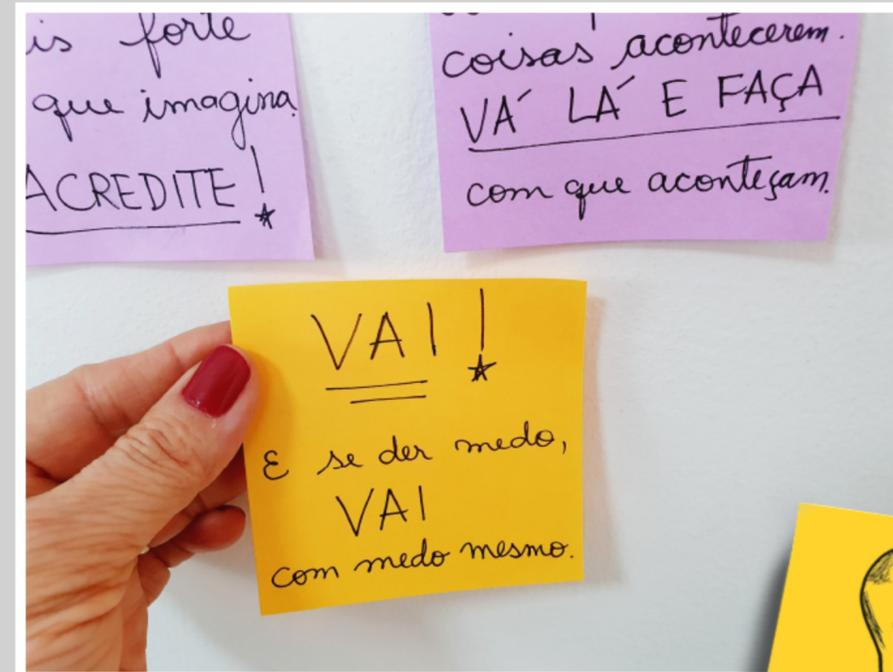 is forte
que imagina
ACREDITE!
coisas acontecerem.
VÁ LÁ E FAÇA
com que aconteçam.
VAI!
E se der medo,
VAI
com medo mesmo.